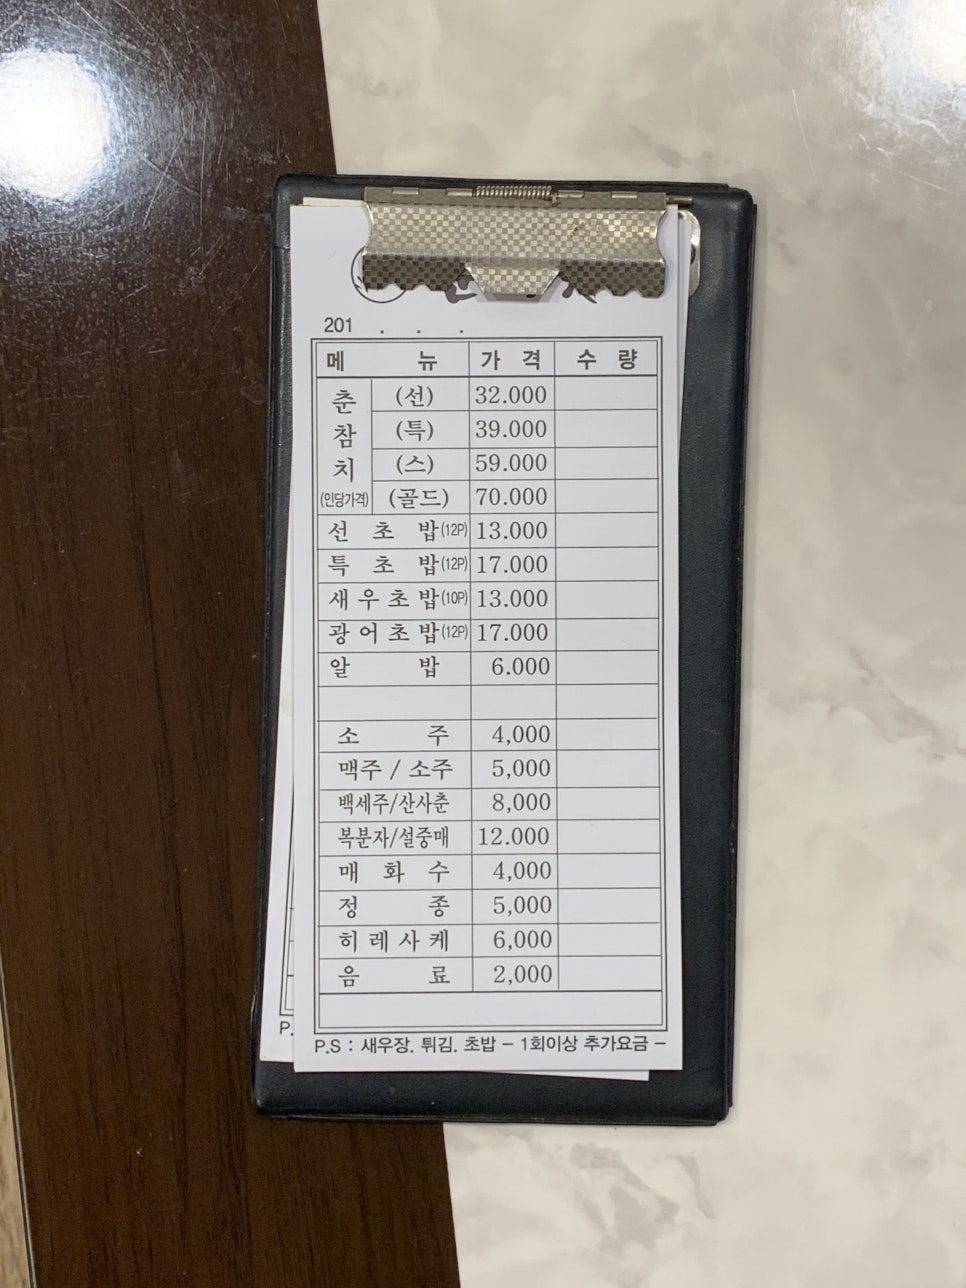 201 . . .
메 뉴 가 격 수 량
춘참치 (인당가격)
(선) 32.000
(특) 39.000
(스) 59.000
(골드) 70.000
선 초 밥(12P) 13.000
특 초 밥(12P) 17.000
새우초밥(10P) 13.000
광어초밥(12P) 17.000
알 밥 6.000
소 주 4,000
맥주 / 소주 5,000
백세주/산사춘 8,000
복분자/설중매 12.000
매 화 수 4,000
정 종 5,000
히레사케 6,000
음 료 2,000
P.S : 새우장. 튀김. 초밥 - 1회이상 추가요금 -
P.